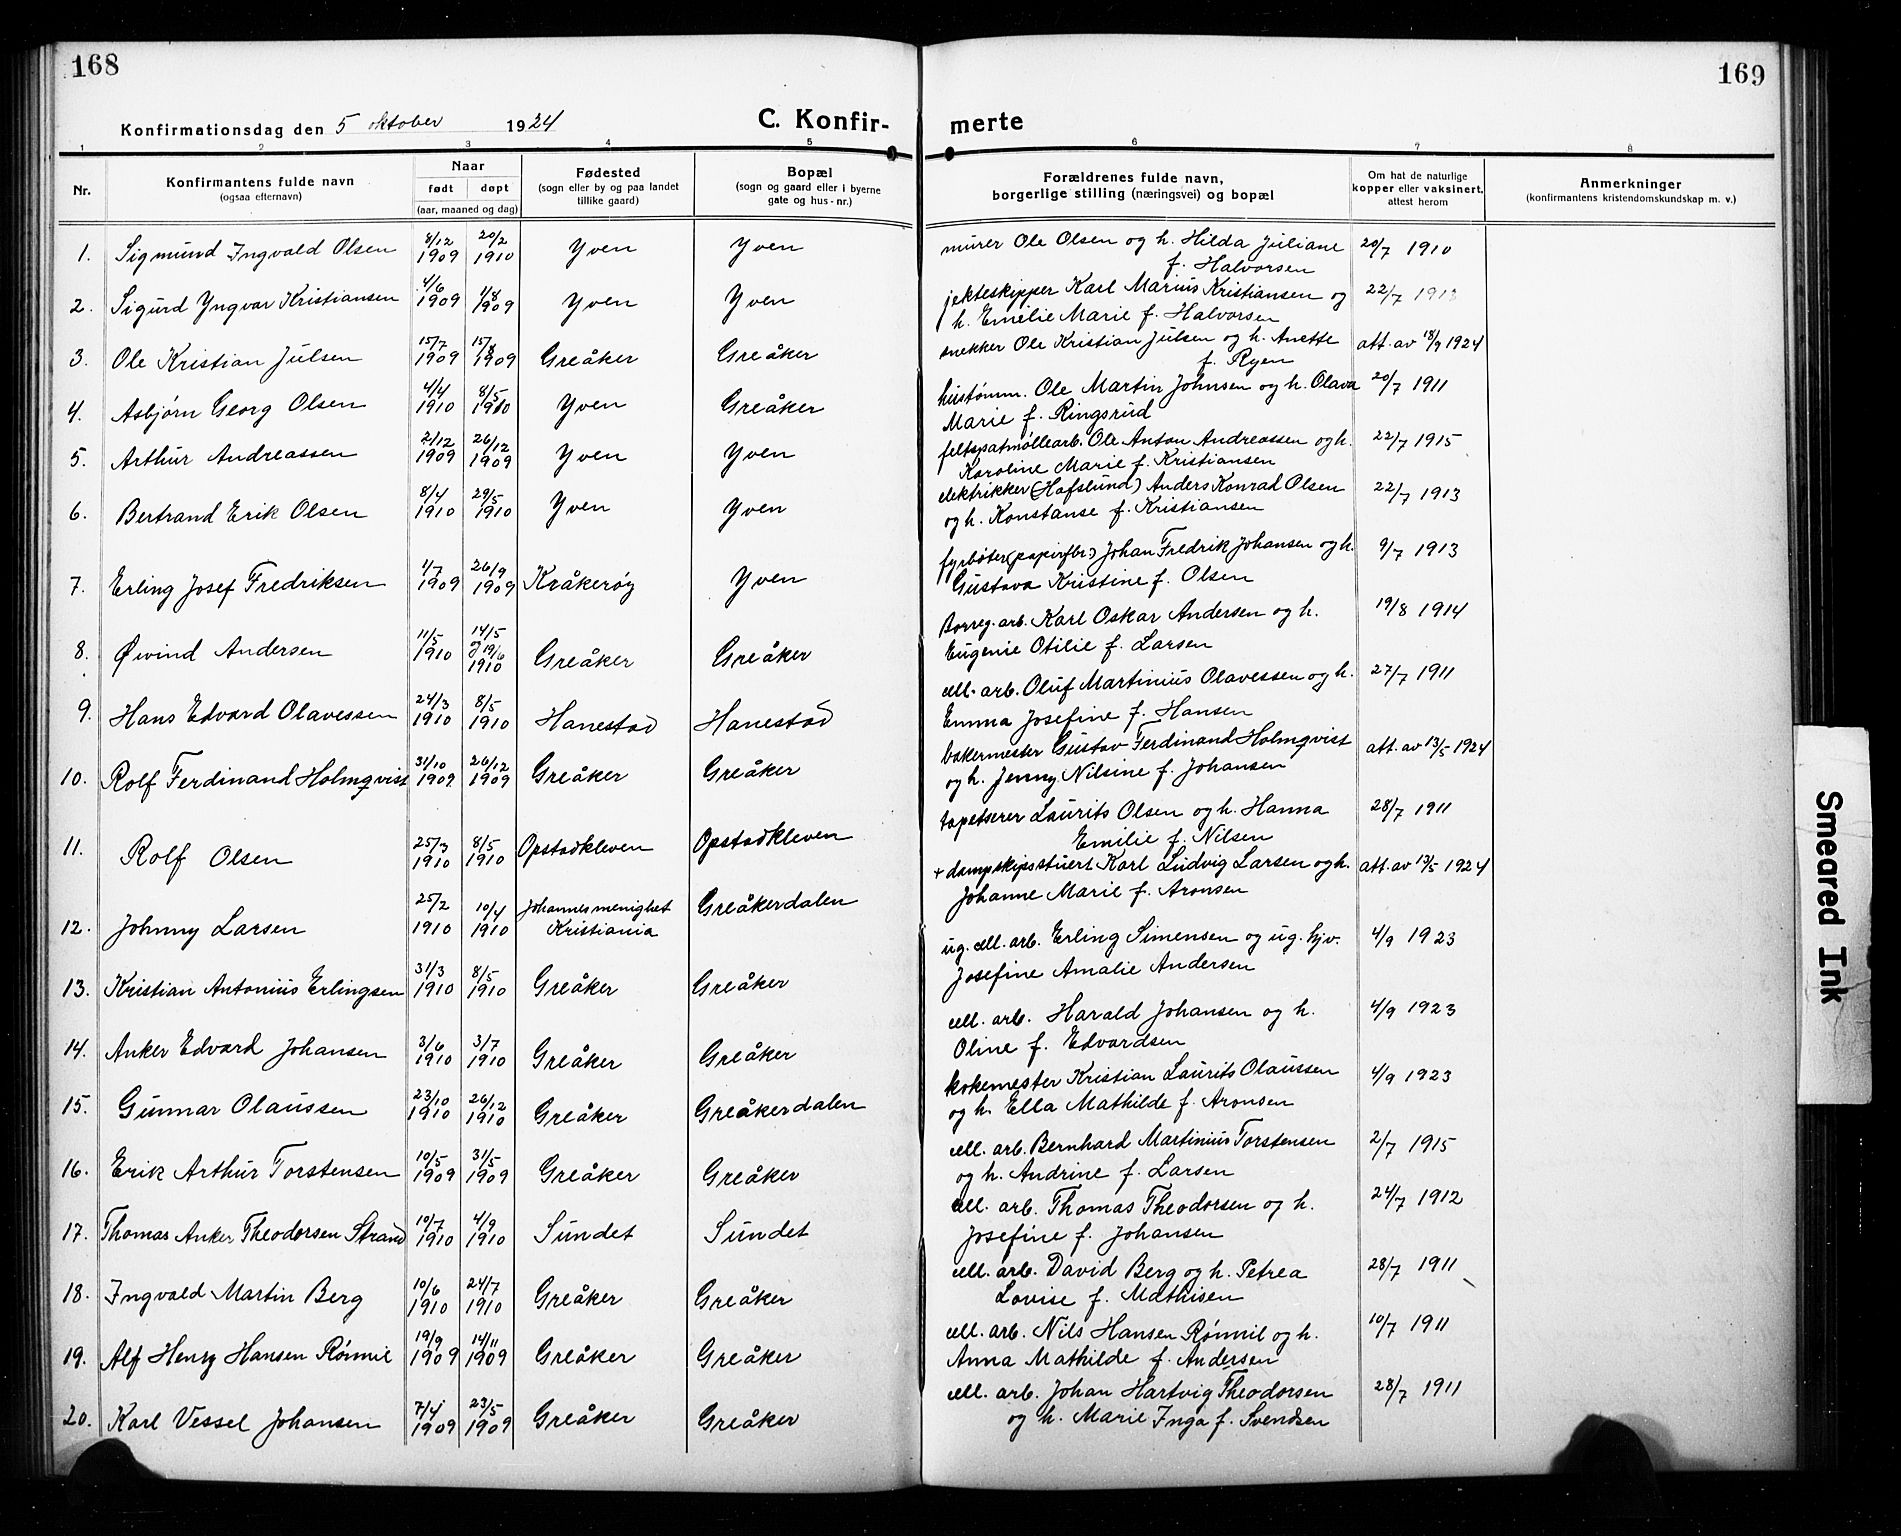 168
169
Konfirmationsdag den 5 oktober 1924
C. Konfir-
merte
1 2 3 4 5 6 7 8
Nr.
Konfirmantens fulde navn
(ogsaa efternavn)
Naar
født døpt
(aar, maaned og dag)
Fødested
(sogn eller by og paa landet
tillike gaard)
Bopæl
(sogn og gaard eller i byerne
gate og hus-nr.)
Forældrenes fulde navn,
borgerlige stilling (næringsvei) og bopæl
Om hat de naturlige
kopper eller vaksinert.
attest herom
Anmerkninger
(konfirmantens kristendomskundskap m. v.)
1. Sigmund Ingvald Olsen 8/12 1909 20/2 1910 Yven Yven murer Ole Olsen og h. Hilda Juliane 20/7 1910
f. Halvorsen
2. Sigurd Yngvar Kristiansen 4/6 1909 1/8 1909 Yven Yven jekteskipper Karl Marius Kristiansen og 22/7 1913
h. Emelie Marie f. Halvorsen
3. Ole Kristian Julsen 15/7 1909 15/8 1909 Greåker Greåker snekker Ole Kristian Julsen og h. Anette att. av 18/9 1924
f. Ryen
4. Asbjørn Georg Olsen 4/4 1910 8/5 1910 Yven Greåker hustømm. Ole Martin Johnsen og h. Olava 20/7 1911
Marie f. Ringsrud
5. Arthur Andreassen 2/12 1909 26/12 1909 Yven Yven feltspatmøllearb. Ole Anton Andreassen og h. 22/7 1915
Karoline Marie f. Kristiansen
6. Bertrand Erik Olsen 8/4 1910 29/5 1910 Yven Yven elektrikker (Hafslund) Anders Konrad Olsen 22/7 1913
og h. Konstanse f. Kristiansen
7. Erling Josef Fredriksen 4/7 1909 26/9 1909 Kråkerøy Yven fyrbøter (papirfbr.) Johan Fredrik Johansen og h. 9/7 1913
Gustava Kristine f. Olsen
8. Øivind Andersen 11/5 1910 14/5 og 19/6 1910 Greåker Greåker Borreg. arb. Karl Oskar Andersen og h. 19/8 1914
Eugenie Otilie f. Larsen
9. Hans Edvard Olavessen 24/3 1910 8/5 1910 Hanestad Hanestad cell. arb. Oluf Martinius Olavessen og h. 27/7 1911
Emma Josefine f. Hansen
10. Rolf Ferdinand Holmqvist 31/10 1909 26/12 1909 Greåker Greåker bakermester Gustav Ferdinand Holmqvist att. av 13/5 1924
og h. Jenny Nilsine f. Johansen
11. Rolf Olsen 25/3 1910 8/5 1910 Opstadkleven Opstadkleven tapetserer Laurits Olsen og h. Hanna 28/7 1911
Emilie f. Nilsen
12. Johnny Larsen 25/2 1910 10/4 1910 Johannesmenighet Kristiania Greåkerdalen + dampskipsstuert Karl Ludvig Larsen og h. att. av 13/5 1924
Johanne Marie f. Aronsen
13. Kristian Antonius Erlingsen 31/3 1910 8/5 1910 Greåker Greåker ug. cell. arb. Erling Simensen og ug. hjv. 4/9 1923
Josefine Amalie Andersen
14. Anker Edvard Johansen 3/6 1910 3/7 1910 Greåker Greåker cell. arb. Harald Johansen og h. 4/9 1923
Oline f. Edvardsen
15. Gunnar Olaussen 23/10 1910 26/12 1910 Greåker Greåkerdalen kokemester Kristian Laurits Olaussen 4/9 1923
og h. Ella Mathilde f. Aronsen
16. Erik Arthur Torstensen 10/5 1909 31/5 1909 Greåker Greåker cell. arb. Bernhard Martinius Torstensen 2/7 1915
og h. Andrine f. Larsen
17. Thomas Anker Theodorsen Strand 10/7 1910 4/9 1910 Sundet Sundet cell. arb. Thomas Theodorsen og h. 24/7 1912
Josefine f. Johansen
18. Ingvald Martin Berg 10/6 1910 24/7 1910 Greåker Greåker cell. arb. David Berg og h. Petrea 28/7 1911
Lovise f. Mathisen
19. Alf Henry Hansen Rønnil 19/9 1909 14/11 1909 Greåker Greåker cell. arb. Nils Hansen Rønnil og h. 10/7 1911
Anna Mathilde f. Andersen
20. Karl Vessel Johansen 7/4 1909 23/5 1909 Greåker Greåker cell. arb. Johan Hartvig Theodorsen 28/7 1911
og h. Marie Inga f. Svendsen
Smeared Ink